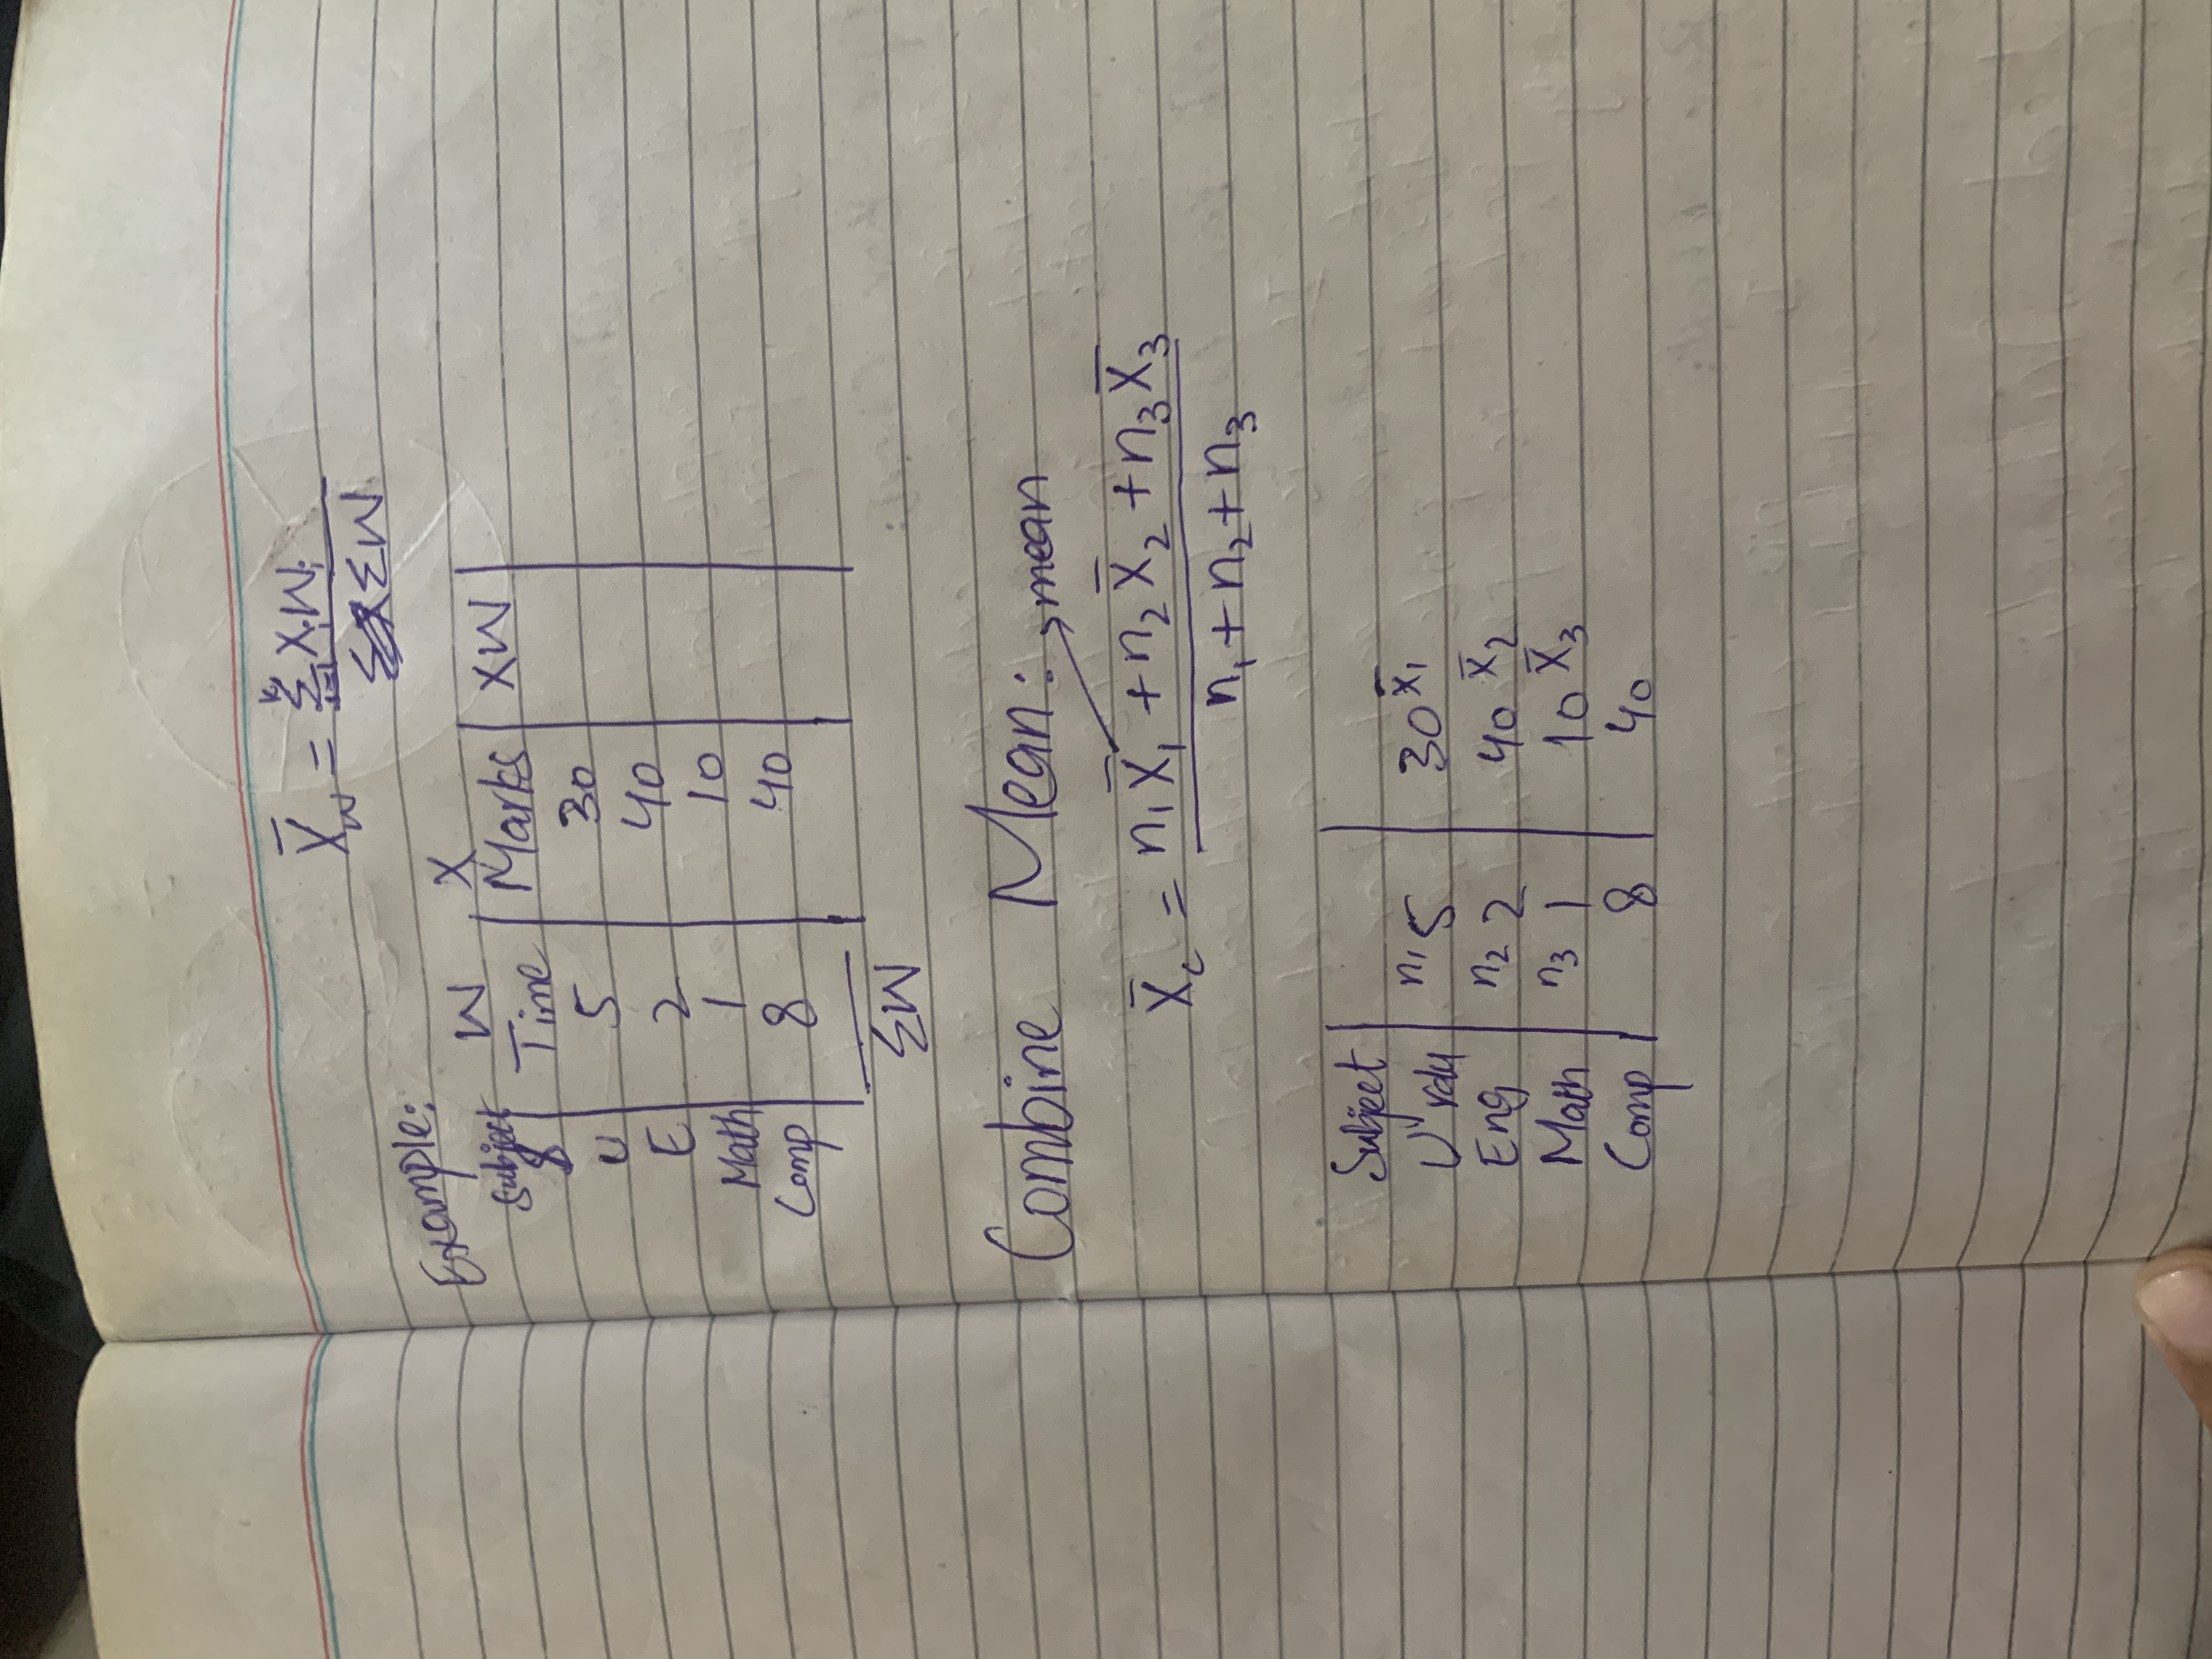 X̄w = Σᵏᵢ₌₁ XᵢWᵢ / ΣW
Example:
W X
Subject Time Marks XW
U 5 30
E 2 40
Math 1 10
Comp 8 40
ΣW
Combine Mean: → mean
X̄c = n₁X̄₁ + n₂X̄₂ + n₃X̄₃ / n₁ + n₂ + n₃
Subject
Urdu n₁ 5 30 X̄₁
Eng n₂ 2 40 X̄₂
Math n₃ 1 10 X̄₃
Comp 8 40